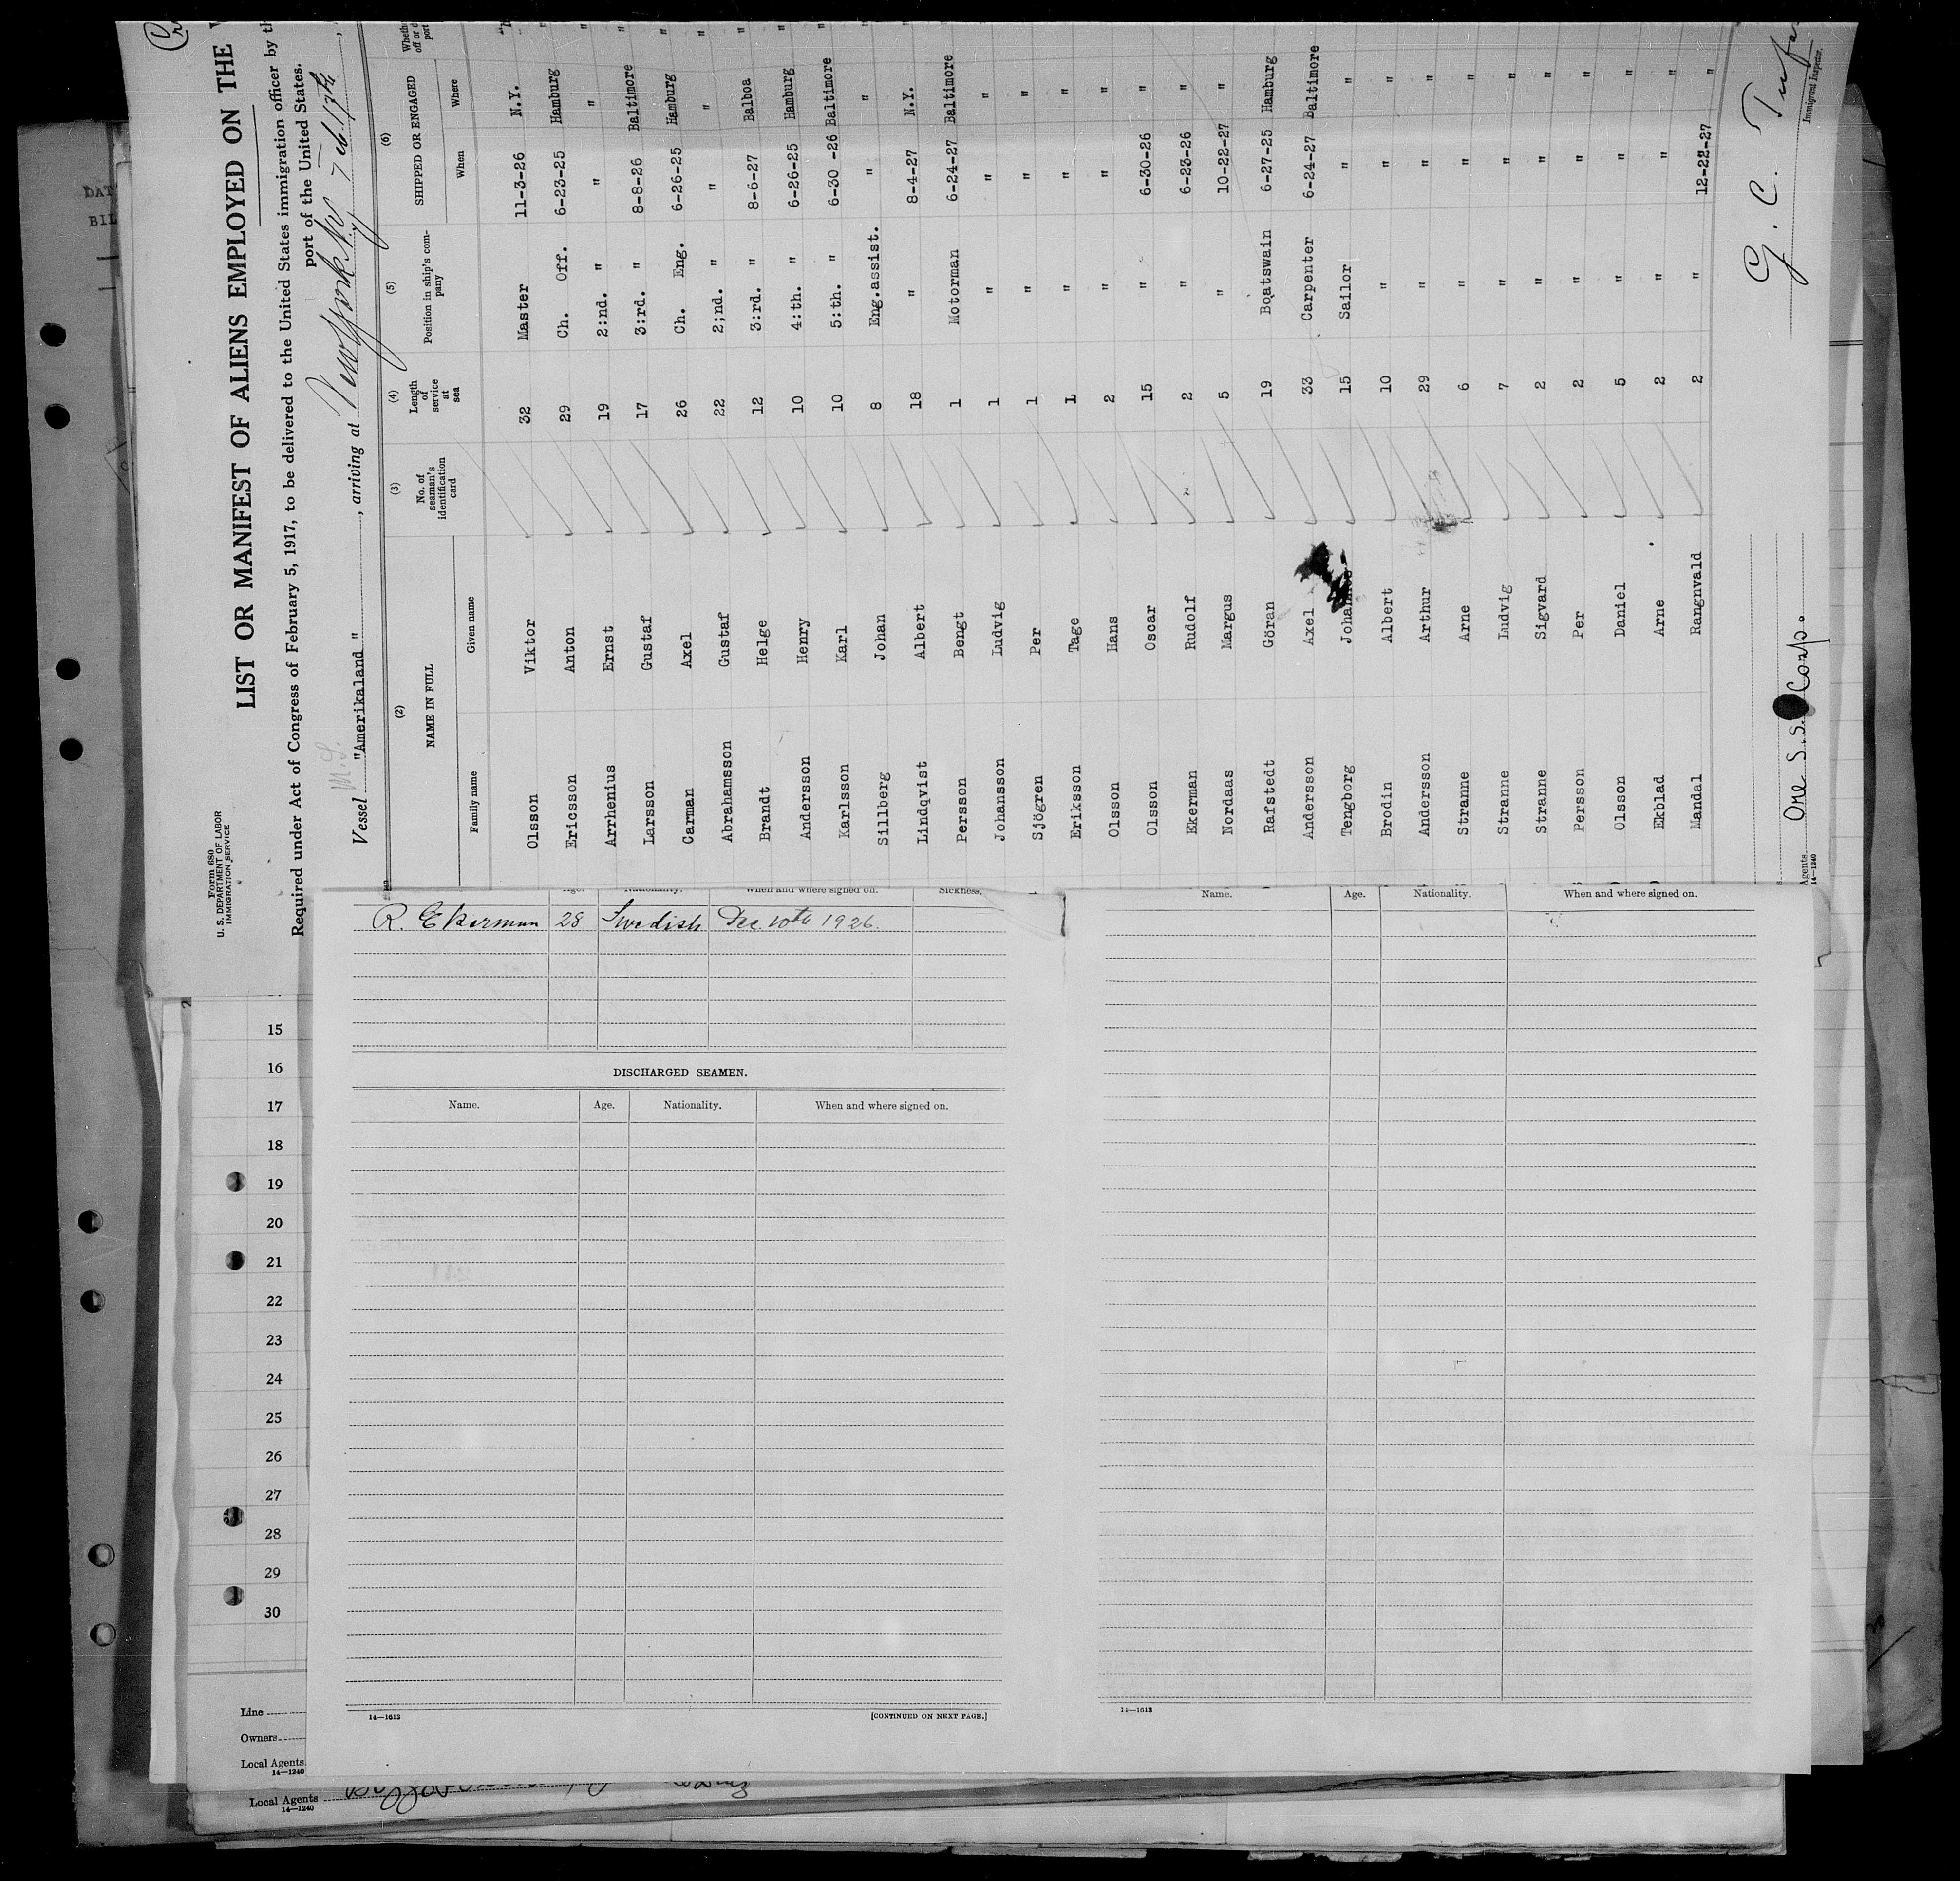 Form 680
U. S. DEPARTMENT OF LABOR
IMMIGRATION SERVICE
LIST OR MANIFEST OF ALIENS EMPLOYED ON THE
Required under Act of Congress of February 5, 1917, to be delivered to the United States immigration officer by
port of the United States.
Vessel M.S. "Amerikaland", arriving at New York N.Y. Feb. 17th,
(2) (3) (4) (5) (6)
NAME IN FULL No. of seaman's identification card Length of service at sea Position in ship's company SHIPPED OR ENGAGED
Family name Given name When Where
Olsson Viktor 32 Master 11-3-26 N.Y.
Ericsson Anton 29 Ch. Off. 6-23-25 Hamburg
Arrhenius Ernst 19 2:nd. " " "
Larsson Gustaf 17 3:rd. " 8-8-26 Baltimore
Carman Axel 26 Ch. Eng. 6-26-25 Hamburg
Abrahamsson Gustaf 22 2;nd. " " "
Brandt Helge 12 3:rd. " 8-6-27 Balboa
Andersson Henry 10 4:th. " 6-26-25 Hamburg
Karlsson Karl 10 5:th. " 6-30 -26 Baltimore
Sillberg Johan 8 Eng.assist. " "
Lindqvist Albert 18 " 8-4-27 N.Y.
Persson Bengt 1 Motorman 6-24-27 Baltimore
Johansson Ludvig 1 " " "
Sjögren Per 1 " " "
Eriksson Tage 1 " " "
Olsson Hans 2 " " "
Olsson Oscar 15 " 6-30-26 "
Ekerman Rudolf 2 " 6-23-26 "
Nordaas Margus 5 " 10-22-27 "
Rafstedt Göran 19 Boatswain 6-27-25 Hamburg
Andersson Axel 33 Carpenter 6-24-27 Baltimore
Tengborg Johannes 15 Sailor " "
Brodin Albert 10 " " "
Andersson Arthur 29 " " "
Stranne Arne 6 " " "
Stranne Ludvig 7 " " "
Stranne Sigvard 2 " " "
Persson Per 2 " " "
Olsson Daniel 5 " " "
Ekblad Arne 2 " " "
Mandal Rangnvald 2 " 12-22-27 "
G. C.
Immigrant Inspector.
Ore S.S. Corp.
Agents
14—1240
Age. Nationality. When and where signed on. Sickness.
R. Ekerman 28 Swedish Dec. 10th 1926.
DISCHARGED SEAMEN.
Name. Age. Nationality. When and where signed on.
14—1613
[CONTINUED ON NEXT PAGE.]
Name. Age. Nationality. When and where signed on.
14—1613
15
16
17
18
19
20
21
22
23
24
25
26
27
28
29
30
Line
Owners
Local Agents
14—1240
Local Agents
14—1240